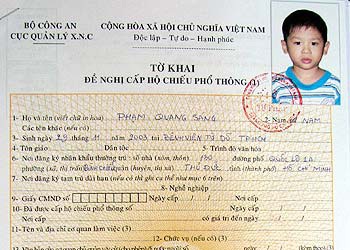 BỘ CÔNG AN
CỤC QUẢN LÝ X.N.C
CỘNG HÒA XÃ HỘI CHỦ NGHĨA VIỆT NAM
Độc lập - Tự do - Hạnh phúc
TỜ KHAI
ĐỀ NGHỊ CẤP HỘ CHIẾU PHỔ THÔNG (1)
1- Họ và tên (viết chữ in hoa) PHẠM QUANG SANG 2- Nam, nữ NAM
Các tên khác (nếu có)
3- Sinh ngày 29 tháng 11 năm 2003 BỆNH VIỆN TỪ DŨ TPHCM
4- Tôn giáo Dân tộc 5- Trình độ văn hóa
6- Nơi đăng ký nhân khẩu thường trú: số nhà (thôn, xóm) 180 đường phố QUỐC LỘ 1A
phường (xã, thị trấn) quận (huyện, thị xã) THỦ ĐỨC tỉnh (thành phố) HỒ CHÍ MINH
7- Nơi đăng ký tạm trú dài hạn (nếu có thì ghi cụ thể như mục 6 trên)
8- Nghề nghiệp
9- Giấy CMND số Cấp ngày / / Nơi cấp
10- Đã được cấp hộ chiếu phổ thông số (nếu có) Cấp ngày / /
Nơi cấp có giá trị đến ngày / /
11- Tên và địa chỉ cơ quan làm việc (3)
12- Chức vụ (nếu có) (3)